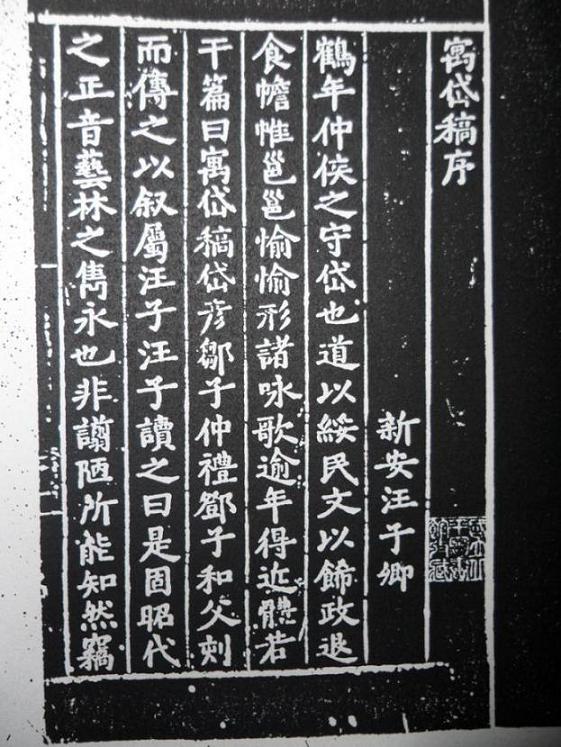 寓岱稿序
新安汪子卿
鶴年仲侯之守岱也道以綏民文以飾政退
食幨帷邕邕愉愉形諸咏歌逾年得近體若
干篇曰寓岱稿岱彦鄒子仲禮鄧子和父刻
而傳之以叙屬汪子汪子讀之曰是固昭代
之正音藝林之雋永也非謭陋所能知然竊